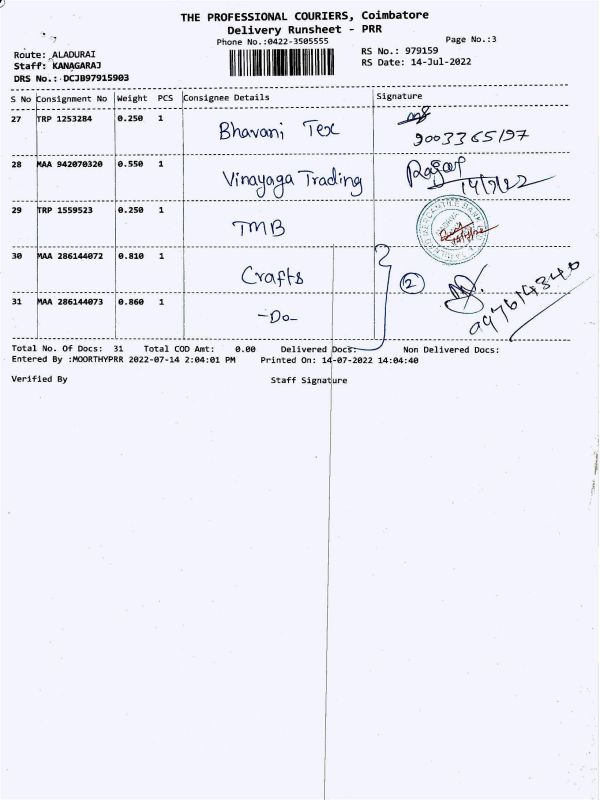 THE PROFESSIONAL COURIERS, Coimbatore
Delivery Runsheet - PRR
Phone No.:0422-3505555 Page No.:3
Route: ALADURAI RS No.: 979159
Staff: KANAGARAJ RS Date: 14-Jul-2022
DRS No.: DCJB97915903
S No Consignment No Weight PCS Consignee Details Signature
27 TRP 1253284 0.250 1 Bhavani Tex
9003365197
28 MAA 942070320 0.550 1 Vinayaga Trading
14/7/22
29 TRP 1559523 0.250 1 TMB
30 MAA 286144072 0.810 1 Crafts 2
31 MAA 286144073 0.860 1 -Do-
Total No. Of Docs: 31 Total COD Amt: 0.00 Delivered Docs: Non Delivered Docs:
Entered By :MOORTHYPRR 2022-07-14 2:04:01 PM Printed On: 14-07-2022 14:04:40
Verified By Staff Signature